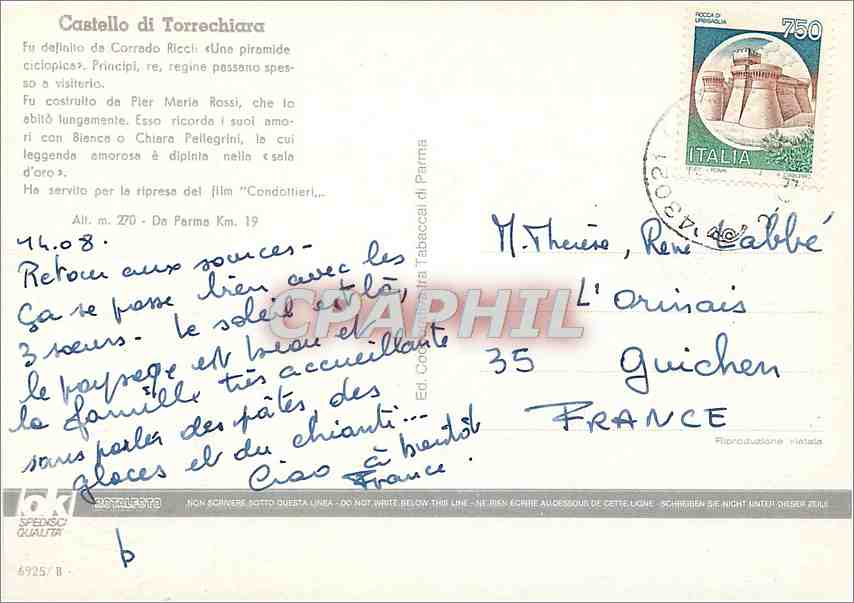 Castello di Torrechiara
Fu definito da Corrado Ricci: «Una piramide
ciclopica». Principi, re, regine passano spes-
so a visiterlo.
Fu costruito da Pier Maria Rossi, che lo
abitò lungamente. Esso ricorda i suoi amo-
ri con Bianca o Chiara Pellegrini, la cui
leggenda amorosa è dipinta nella «sala
d'oro».
Ha servito per la ripresa del film "Condottieri„.
Alt. m. 270 - Da Parma Km. 19
14.08.
Retour aux sources -
Ça se passe bien avec les
3 sœurs - Le soleil est là,
le paysage est beau et
la famille très accueillante
sans parler des pâtes, des
glaces et du chianti...
Ciao à bientôt
France.
Ed. Cooperativa fra Tabaccai di Parma
ROCCA DI
URBISAGLIA
750
ITALIA
43021
M. Thérèse, René Labbé
L'Orinais
35 Guichen
FRANCE
Riproduzione vietata
CPAPHIL
loki
SPEDISCI
QUALITÀ
ROTALFOTO
NON SCRIVERE SOTTO QUESTA LINEA - DO NOT WRITE BELOW THIS LINE - NE RIEN ÉCRIRE AU DESSOUS DE CETTE LIGNE - SCHREIBEN SIE NICHT UNTER DIESER ZEILE
b
6925/B -